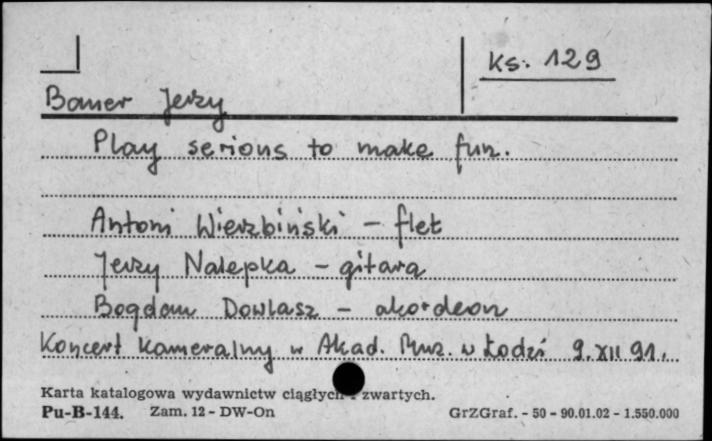 Ks. 129
Bauer Jerzy
Play serious to make fun.
Antoni Wierzbiński - flet
Jerzy Nalepka - gitara
Bogdan Dowlasz - akordeon
Koncert kameralny w Akad. Muz. w Łodzi 9. XII 91.
Karta katalogowa wydawnictw ciągłych i zwartych.
Pu-B-144. Zam. 12 - DW-On GrZGraf. - 50 - 90.01.02 - 1.550.000